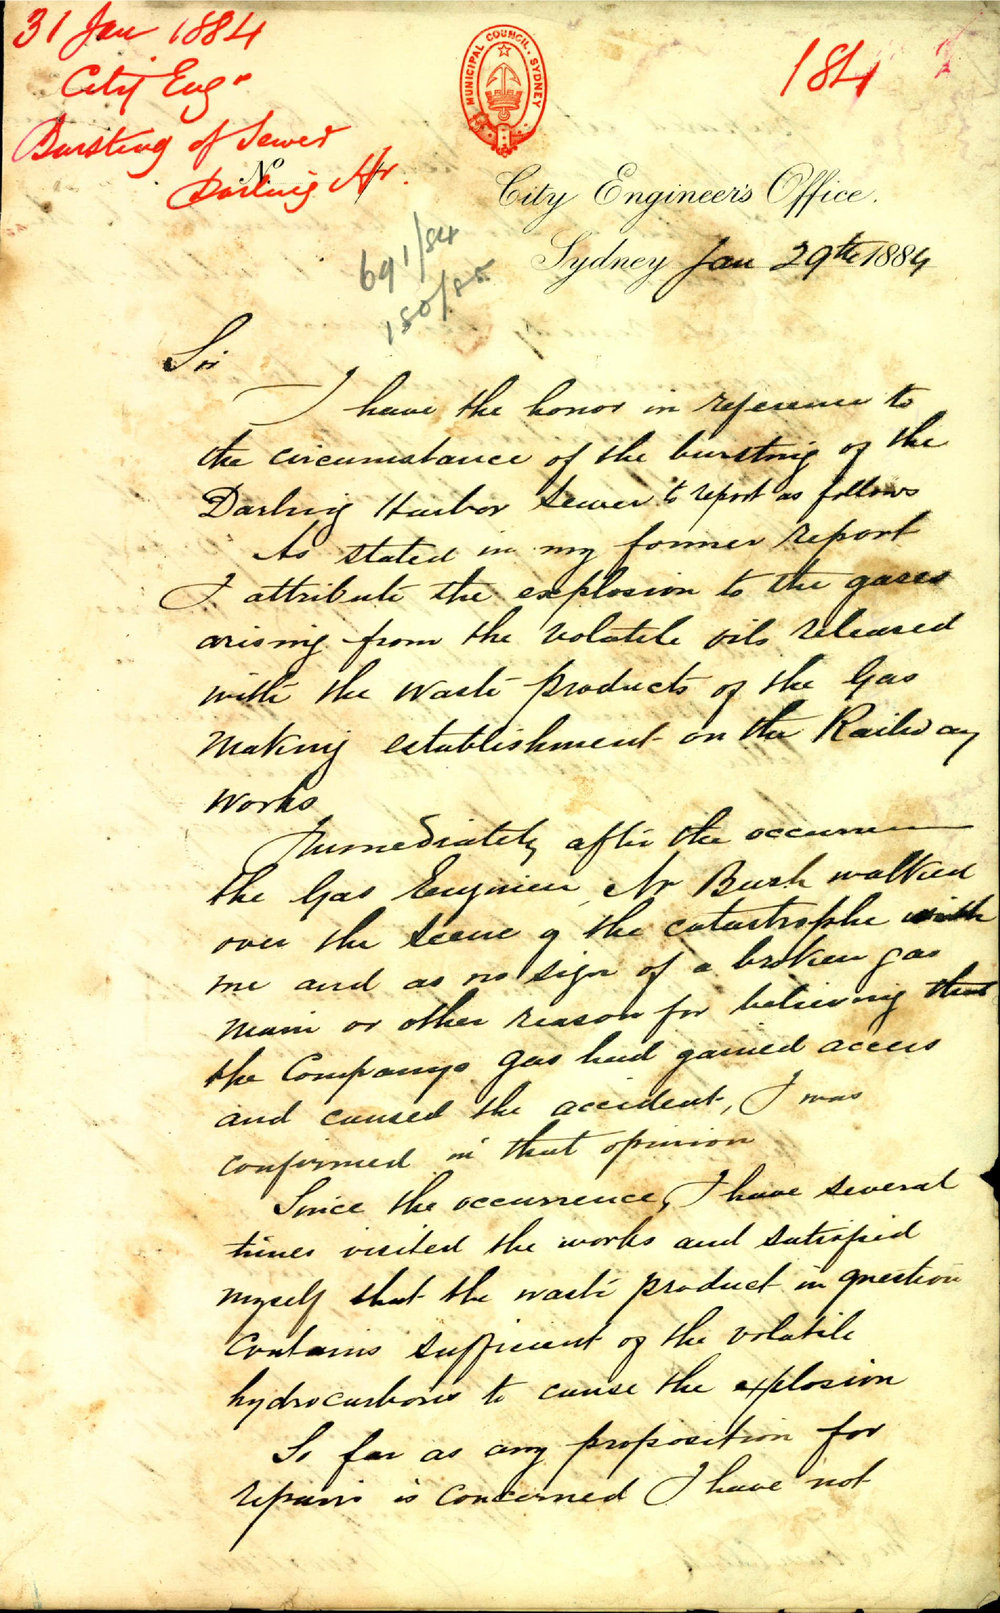 31 Jan 1884
City Engr
Bursting of Sewer
Darling Hr.
184
MUNICIPAL COUNCIL. SYDNEY
No
City Engineer's Office.
691/84
150/85
Sydney Jan 29th 1884
Sir
I have the honor in reference to
the circumstance of the bursting of the
Darling Harbor Sewer to report as follows
As stated in my former report
I attribute the explosion to the gases
arising from the volatile oils released
with the waste products of the Gas
making establishment on the Railway
works
Immediately after the occurrence
the Gas Engineer, Mr Bush walked
over the scene of the catastrophe with
me and as no sign of a broken gas
main or other reason for believing that
the Companys gas had gained access
and caused the accident, I was
confirmed in that opinion
Since the occurrence, I have several
times visited the works and satisfied
myself that the waste product in question
contains sufficient of the volatile
hydrocarbons to cause the explosion
So far as any proposition for
repairs is concerned I have not